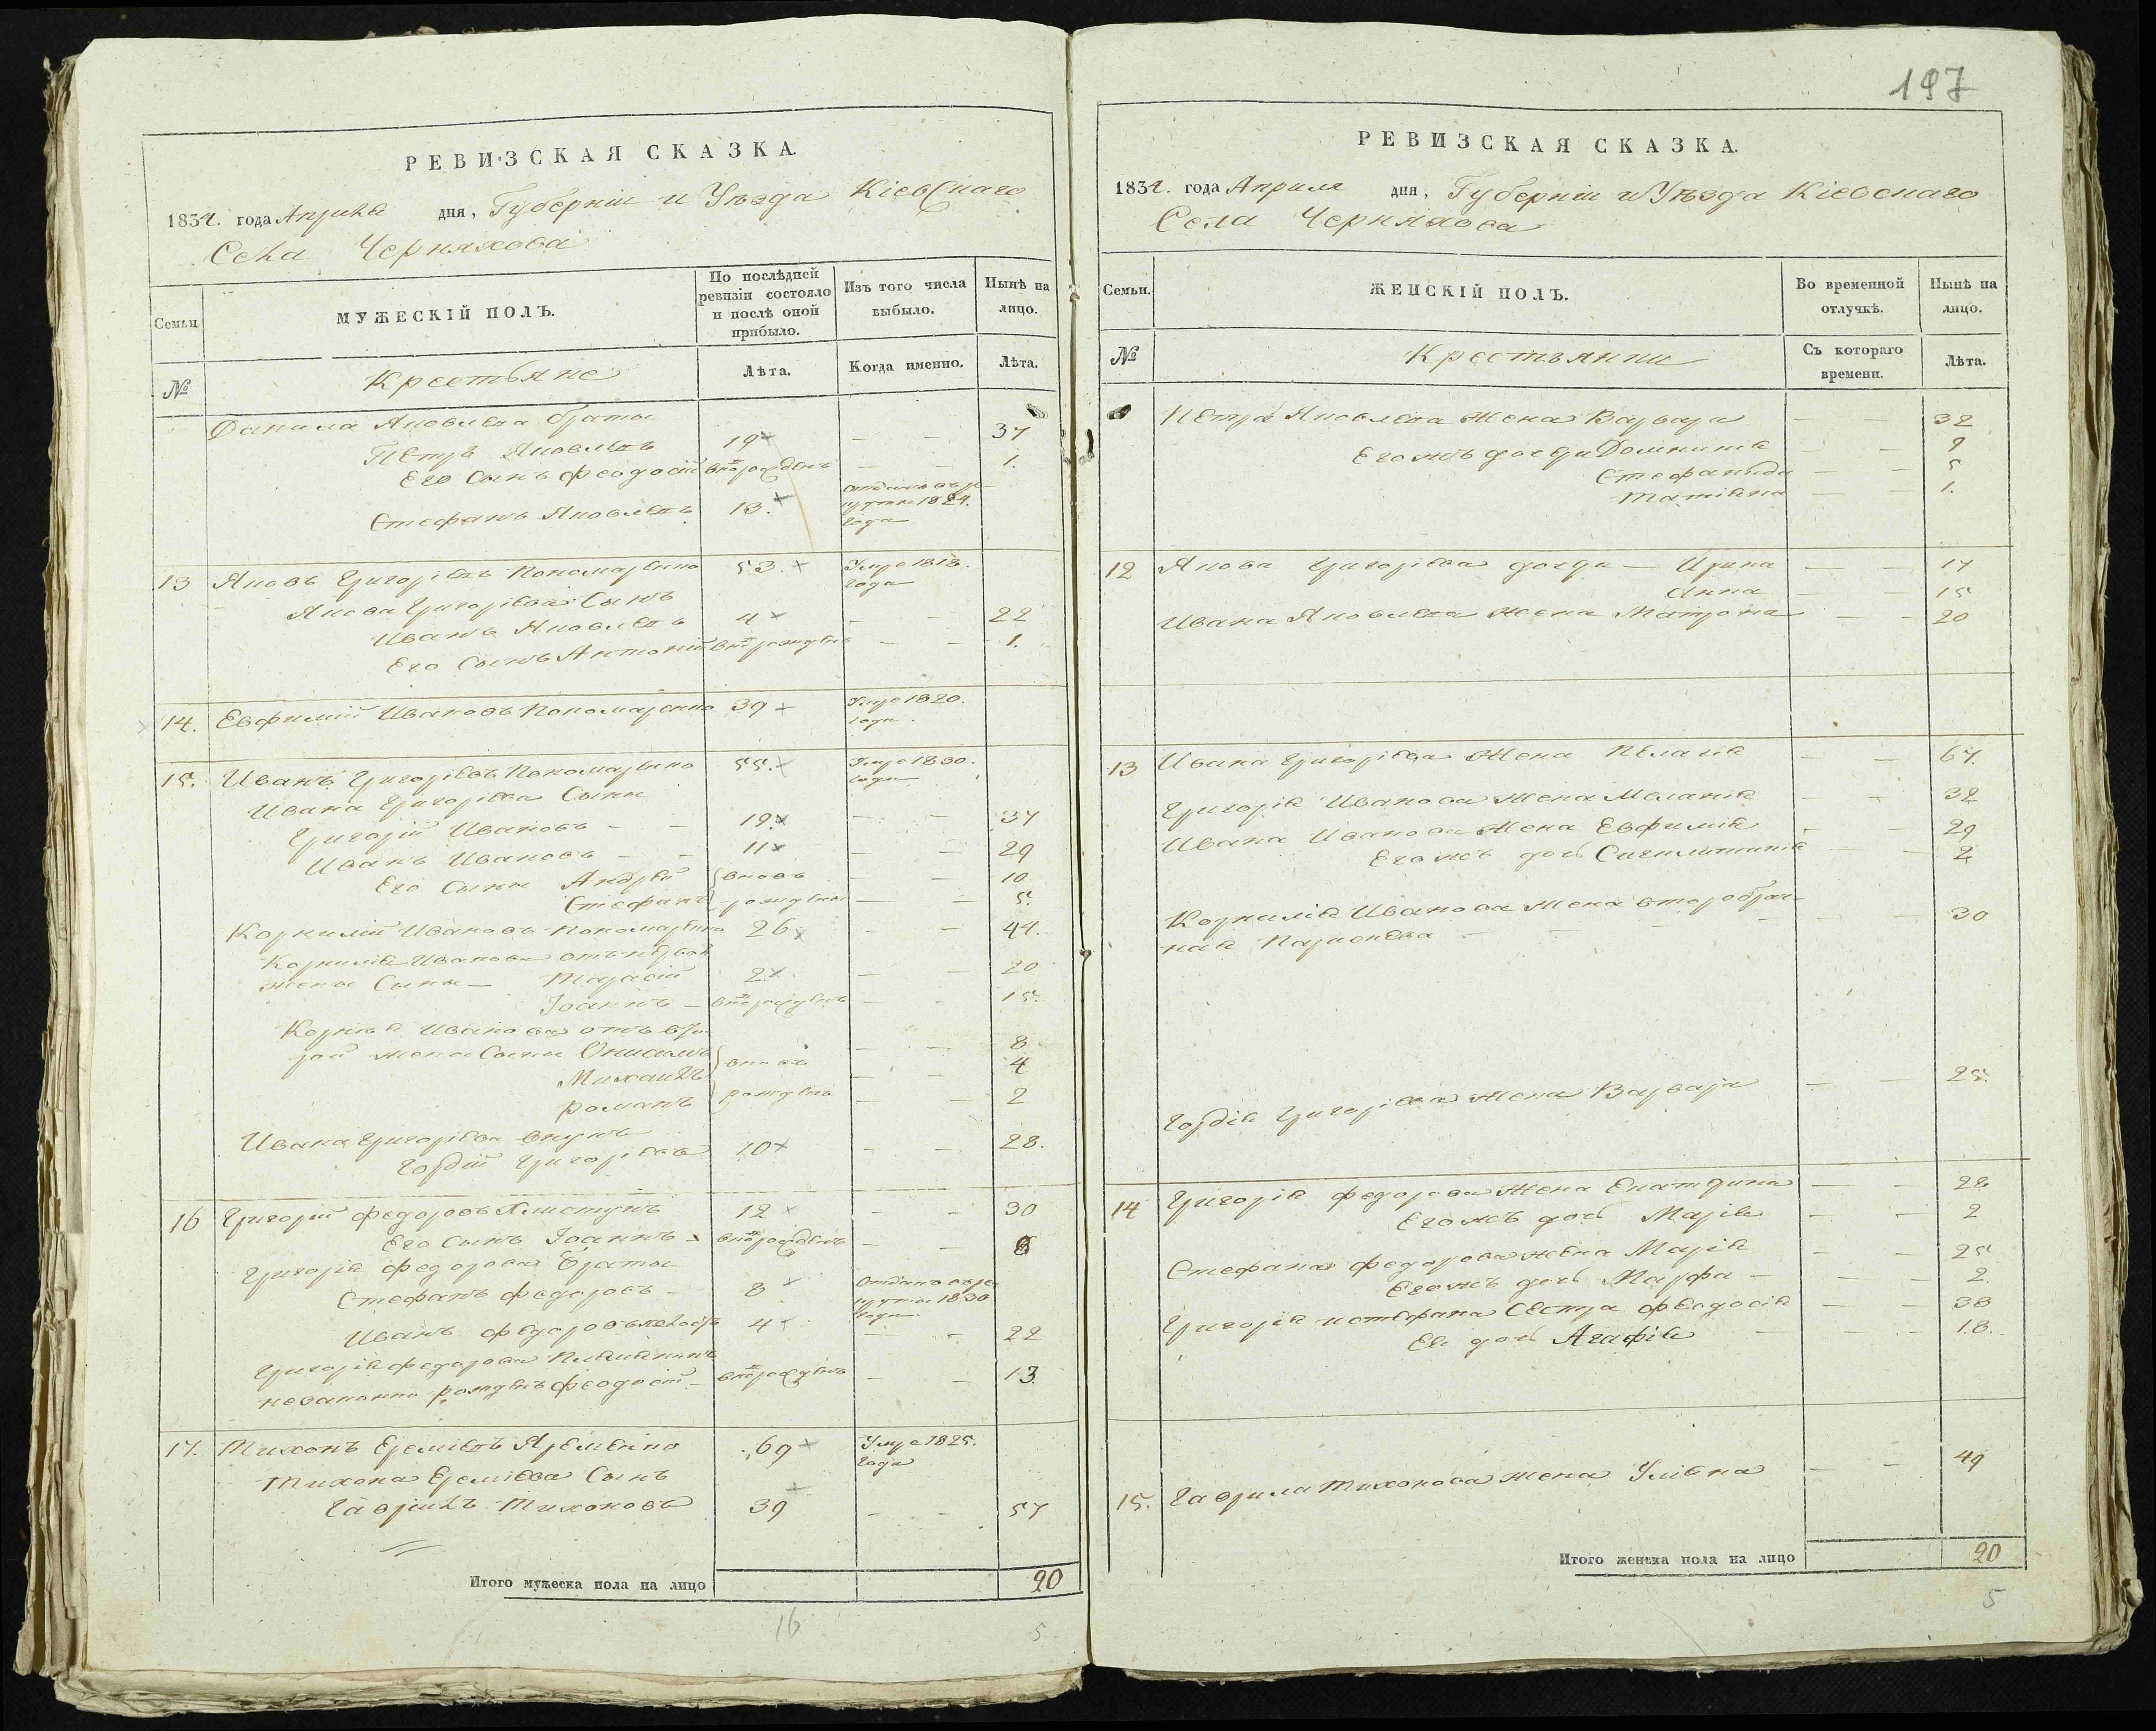 197
РЕВИЗСКАЯ СКАЗКА.
1834. года Априля дня, Губерніи и Уѣзда Кіевскаго
Села Черняхова
Семьи.
МУЖЕСКІЙ ПОЛЪ.
По послѣдней ревизіи состояло и послѣ оной прибыло.
Изъ того числа выбыло.
Нынѣ на лицо.
№
Крестьяне
Лѣта.
Когда именно.
Лѣта.
Данила Яковлева браты
Петръ Яковлевъ 19 — — 37
Его Сынъ Феодосій вновь рожденъ — — 1.
Стефанъ Яковлевъ 13. отданъ въ ре-
круты 1824.
года
13 Яковъ Григоріевъ Пономаренко 53. Умре 1818.
года
Якова Григоріева Сынъ
Иванъ Яковлевъ 4 — — 22
Его Сынъ Антоній вновь рожденъ — — 1.
14. Евфимій Ивановъ Пономаренко 39 Умре 1820.
года
15. Иванъ Григоріевъ Пономаренко 55. Умре 1830.
года
Ивана Григоріева Сыны
Григорій Ивановъ — — 19. — — 37
Иванъ Ивановъ — — 11 — — 29
Его Сыны Андрей вновь — — 10
Стефанъ рождены — — 5.
Корнилій Ивановъ Пономаренко 26 — — 44.
Корнилія Иванова отъ первой
жены Сыны — Тарасій 2 — — 20
Іоаннъ — вновь рожденъ — — 15.
Корнилія Иванова отъ вто-
рой жены Сыны — — 8
Михаилъ вновь — — 4
Романъ рождены — — 2
Ивана Григоріева внукъ
Гордій Григоріевъ 10 — — 28.
16 Григорій Федоровъ Хлистунъ 12 — — 30
Его Сынъ Іоаннъ вновь рожденъ — —
Григорія Федорова Браты
Стефанъ Федоровъ — 8 Отданъ въ ре-
круты 1830
года
Иванъ Федоровъ 4 — — 22
Григорія Федорова Племянникъ
незаконно рожденъ Феодосій — вновь рожденъ — — 13.
17. Тихонъ Ереміевъ Яременко 69 Умре 1825.
года
Тихона Ереміева Сынъ
Гаврилъ Тихоновъ 39 — — 57
Итого мужеска пола на лицо 20
16
5
РЕВИЗСКАЯ СКАЗКА.
1834. года Априля дня, Губерніи и Уѣзда Кіевскаго
Села Черняхова
Семьи.
ЖЕНСКІЙ ПОЛЪ.
Во временной отлучкѣ.
Нынѣ на лицо.
№
Крестьянки
Съ котораго времени.
Лѣта.
Петра Яковлева Жена Варвара — — 32
Его жъ дочери Домникія — — 9
Стефанида — — 5
Татіана — — 1.
12 Якова Григоріева дочери — Ирина — — 17
Анна — — 15
Ивана Яковлева жена Матрона — — 20
13 Ивана Григоріева Жена Пелагія — — 67.
Григорія Иванова жена Меланія — — 32
Ивана Иванова Жена Евфимія — — 29
Его жъ дочь — — 2
Корнилія Иванова жена второбрач-
ная — — — 30
Гордія Григоріева Жена Варвара — — 25.
14 Григорія Федорова Жена Екатерина — —
Его жъ дочь Марія — — 2
Стефана Федорова жена Марія — — 25
Его жъ дочь Марфа — — — 2.
Григорія и Стефана Сестра Феодосія — — 38
Ея дочь Агафія — — 18.
15. Гаврила Тихонова жена Уліяна — — 49
Итого женска пола на лицо 20
5